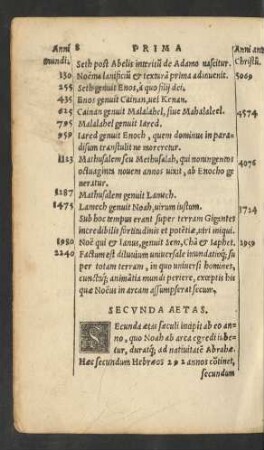 Anni 8 PRIMA Anni ante
mundi. Seth post Abelis interitũ de Adamo nascitur. Christũ.
130 Noëma lanificiũ & texturã prima adinuenit. 5069
255 Seth genuit Enos, à quo filij dei.
435 Enos genuit Cainan, uel Kenan.
625 Cainan genuit Malalehel, siue Mahalaleel. 4574
785 Malalehel genuit Iared.
959 Iared genuit Enoch, quem dominus in para-
disum transtulit ne moreretur.
1123 Mathusalem seu Methusalah, qui noningentos 4076
octuaginta nouem annos uixit, ab Enocho ge
neratur.
1287 Mathusalem genuit Lamech.
1475 Lamech genuit Noah, uirum iustum. 3724
Sub hoc tempus erant super terram Gigantes
incredibilis fortitudinis et potẽtiæ, uiri iniqui.
1980 Noë qui & Ianus, genuit Sem, Chã & Iaphet. 2959
2240 Factum est diluuium uniuersale inundatiõq; su
per totam terram, in quo uniuersi homines,
cunctaq; animãtia mundi periere, exceptis his
quæ Noëus in arcam assumpserat secum.
SECVNDA AETAS.
SEcunda ætas sæculi incipit ab eo an-
no, quo Noah ab arca egredit iube-
tur, duratq; ad natiuitatẽ Abrahæ.
Hæc secundum Hebræos 292 annos cõtinet,
secundum